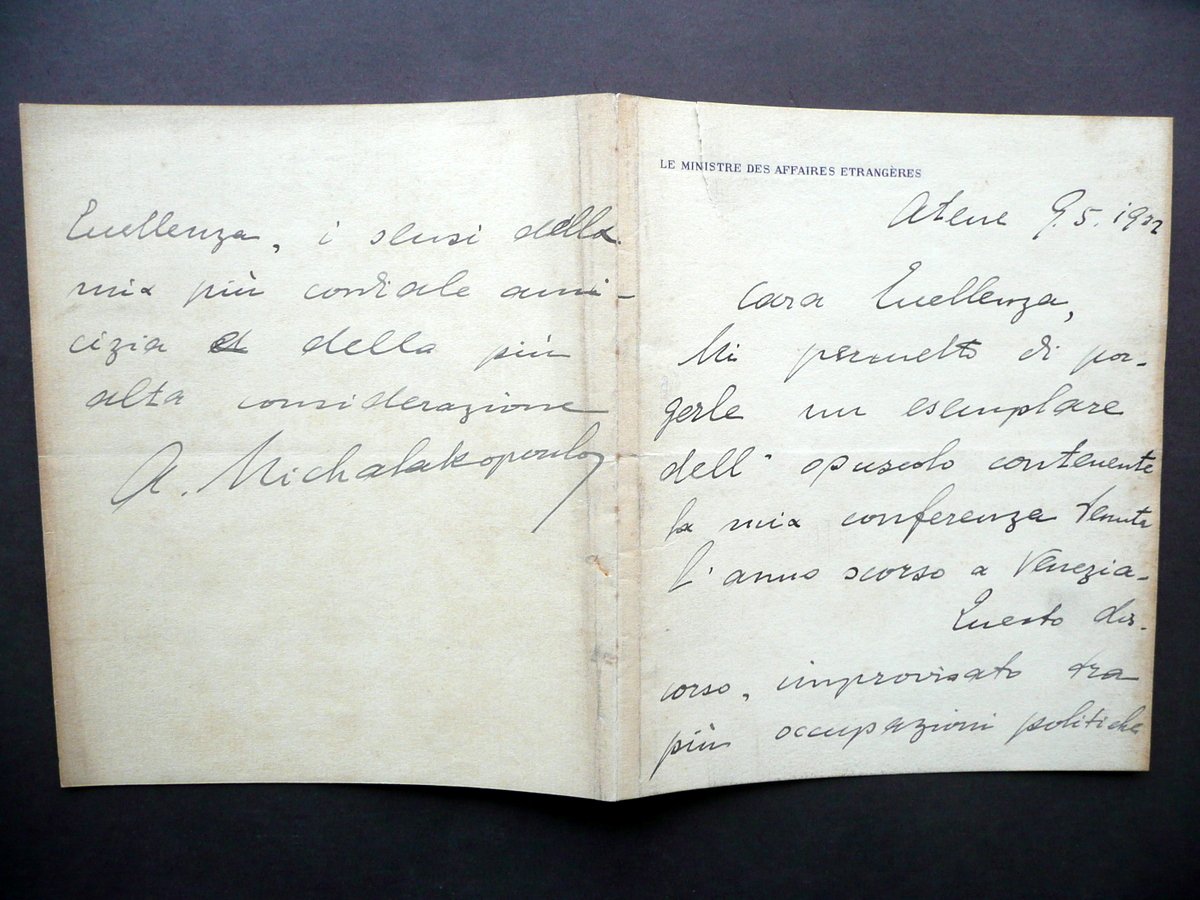 LE MINISTRE DES AFFAIRES ETRANGÈRES
Atene 9.5.1932
Cara Eccellenza,
Mi permetto di por-
gerle un esemplare
dell' opuscolo contenente
la mia conferenza tenuta
l'anno scorso a Venezia-
Questo dis-
corso, improvisato tra
più occupazioni politiche
Eccellenza, i sensi della
mia più cordiale ami-
cizia della più
alta considerazione
A. Michalakopoulos